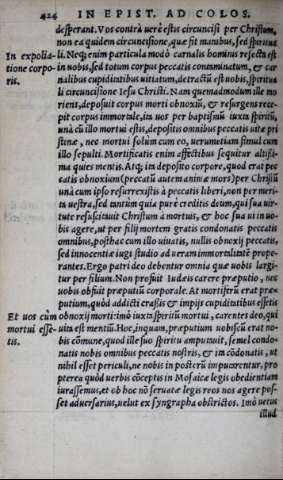 424 IN EPIST. AD COLOS.
desperant. Vos contrà uerè estis circuncisi per Christum,
non ea quidem circuncisione, quæ fit manibus, sed spiritua
In expolia-
tione corpo-
ris.
li. Neq; enim particula modò carnalis hominis reiecta est
in uobis, sed totum corpus peccatis contaminatum, & car
nalibus cupiditatibus uitiatum, detractũ est uobis, spiritua
li circuncisione Iesu Christi. Nam quemadmodum ille mo
riens, deposuit corpus morti obnoxiũ, & resurgens rece-
pit corpus immortale, ita uos per baptismũ iuxta spiritũ,
unà cũ illo mortui estis, depositis omnibus peccatis uitæ pri
stinæ, nec mortui solùm cum eo, uerumetiam simul cum
illo sepulti. Mortificatis enim affectibus sequitur altissi-
ma quies mentis. Atq; ita deposito corpore, quod erat pec
catis obnoxium (peccatũ autem animæ mors) per Christũ
unà cum ipso resurrexistis à peccatis liberi, non per meri-
ta uestra, sed tantùm quia purè creditis deum, qui sua uir-
tute resuscitauit Christum à mortuis, & hoc sua ui in uo-
bis agere, ut per filij mortem gratis condonatis peccatis
omnibus, posthac cum illo uiuatis, nullis obnoxij peccatis,
sed innocentiæ iugi studio ad ueram immortalitatẽ prope-
rantes. Ergo patri deo debentur omnia quæ uobis largi-
tur per filium. Non profuit Iudæis carere præputio, nec
uobis obfuit præputiũ corporale. At mortiferũ erat præ-
putium, quòd addicti crassis & impijs cupiditatibus essetis
Et uos cum
mortui esse-
tis.
obnoxij morti: imò iuxta spiritũ mortui, carentes deo, qui
uita est mentiũ. Hoc, inquam, præputium uobiscũ erat no-
bis cõmune, quod ille suo spiritu amputauit, semel condo-
natis nobis omnibus peccatis nostris, & ita cõdonatis, ut
nihil esset periculi, ne nobis in posterũ imputarentur, pro
pterea quòd uerbis cõceptis in Mosaicæ legis obedientiam
iurassemus, et ob hoc nõ seruatæ legis reos nos agere pos-
set aduersarius, uelut ex syngrapha obstrictos. Imò uetus
illud